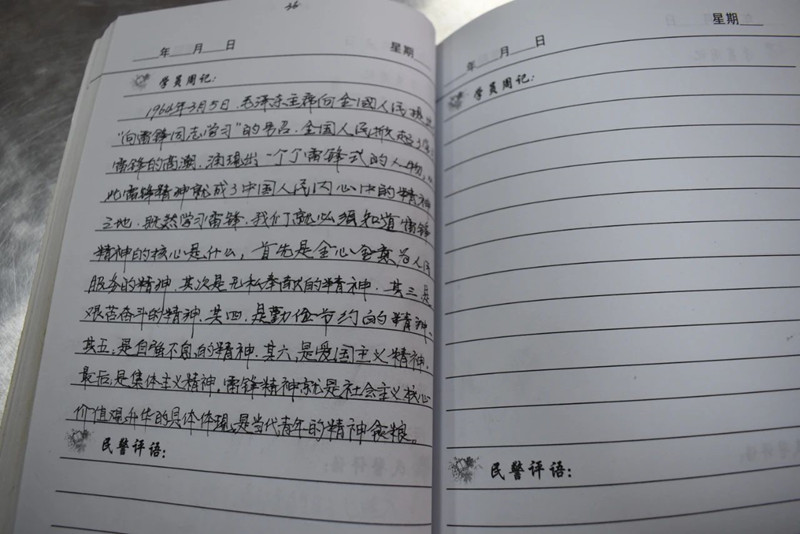 36
年 月 日 星期
学员周记：
1964年3月5日.毛泽东主席向全国人民提出
"向雷锋同志学习"的号召.全国人民掀起了学
雷锋的高潮.涌现出一个个雷锋式的人物.
此雷锋精神就成了中国人民内心中的精神
之地.既然学习雷锋.我们就必须知道雷锋
精神的核心是什么，首先是全心全意为人民
服务的精神.其次是无私奉献的精神.其三是
艰苦奋斗的精神.其四.是勤俭节约的的精神.
其五.是自强不息的精神.其六.是爱国主义精神.
最后是集体主义精神.雷锋精神就是社会主义核心
价值观升华的具体体现.是当代青年的精神食粮。
民警评语：
星期
年 月 日
学员周记：
民警评语：